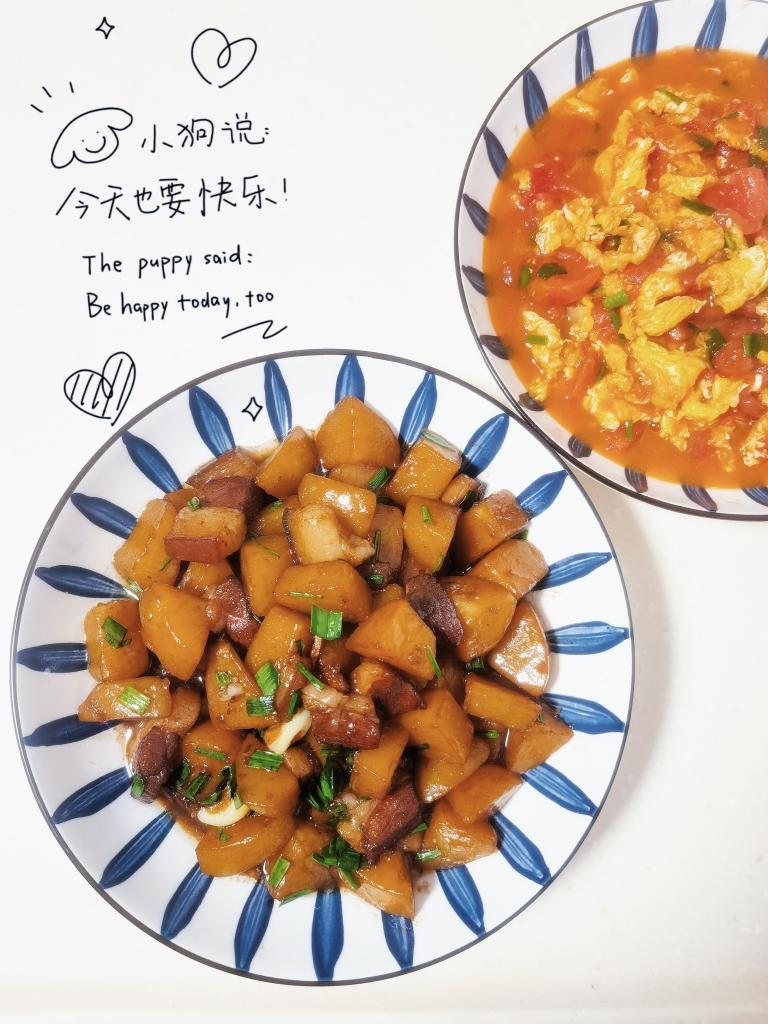 小狗说:
今天也要快乐!
The puppy said:
Be happy today, too